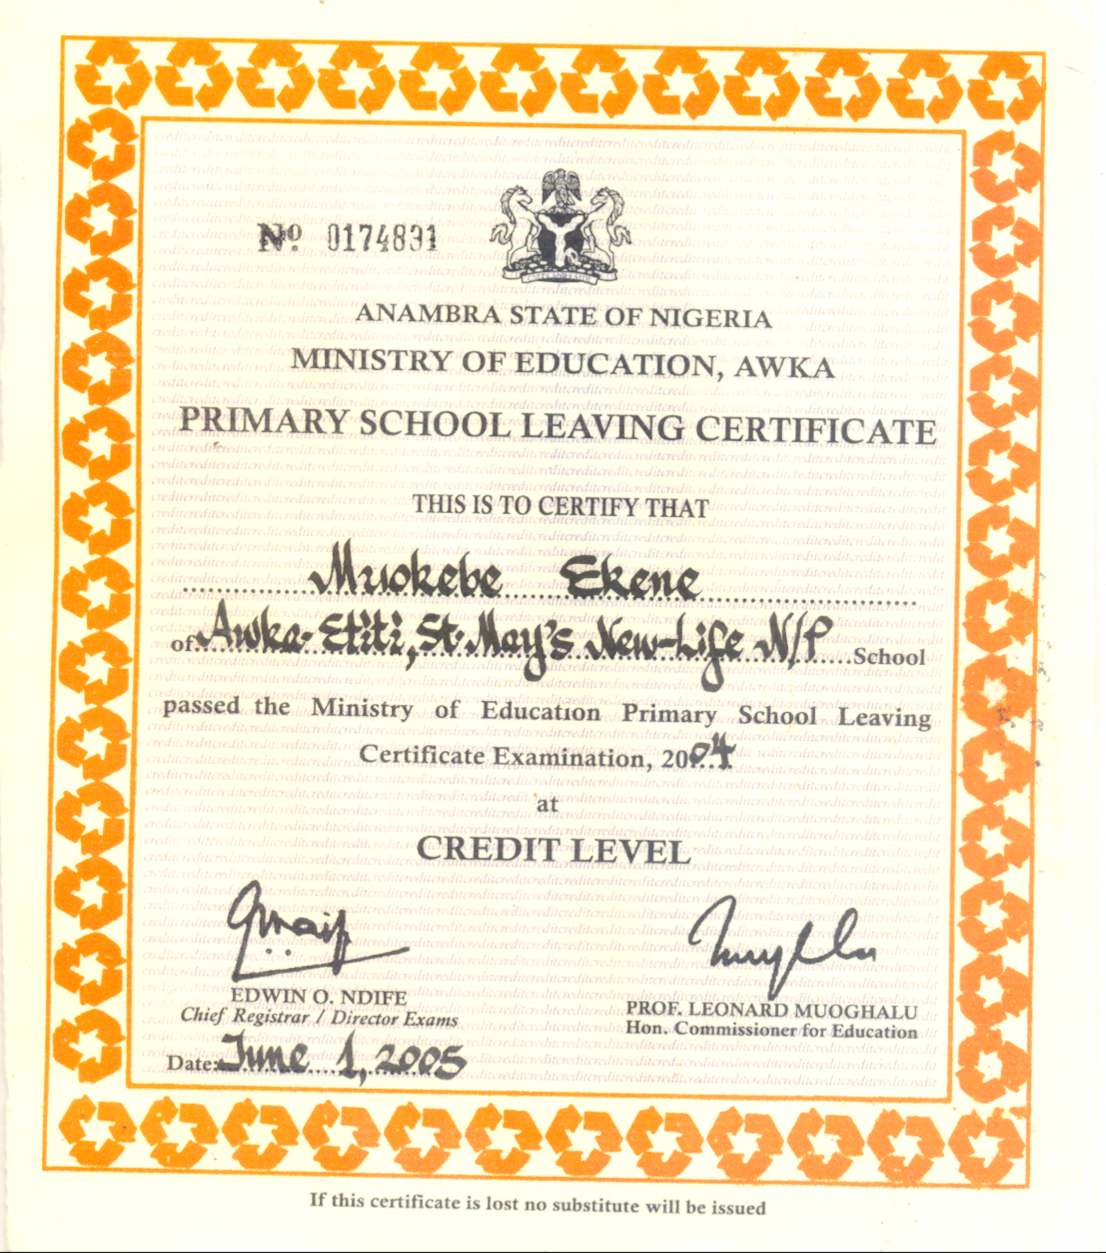 Nº 0174831
ANAMBRA STATE OF NIGERIA
MINISTRY OF EDUCATION, AWKA
PRIMARY SCHOOL LEAVING CERTIFICATE
THIS IS TO CERTIFY THAT
Muokebe Ekene
of Awka-Etiti, St. May's New-Life N/P School
passed the Ministry of Education Primary School Leaving
Certificate Examination, 2004
at
CREDIT LEVEL
EDWIN O. NDIFE
Chief Registrar / Director Exams
PROF. LEONARD MUOGHALU
Hon. Commissioner for Education
Date: June 1, 2005
If this certificate is lost no substitute will be issued